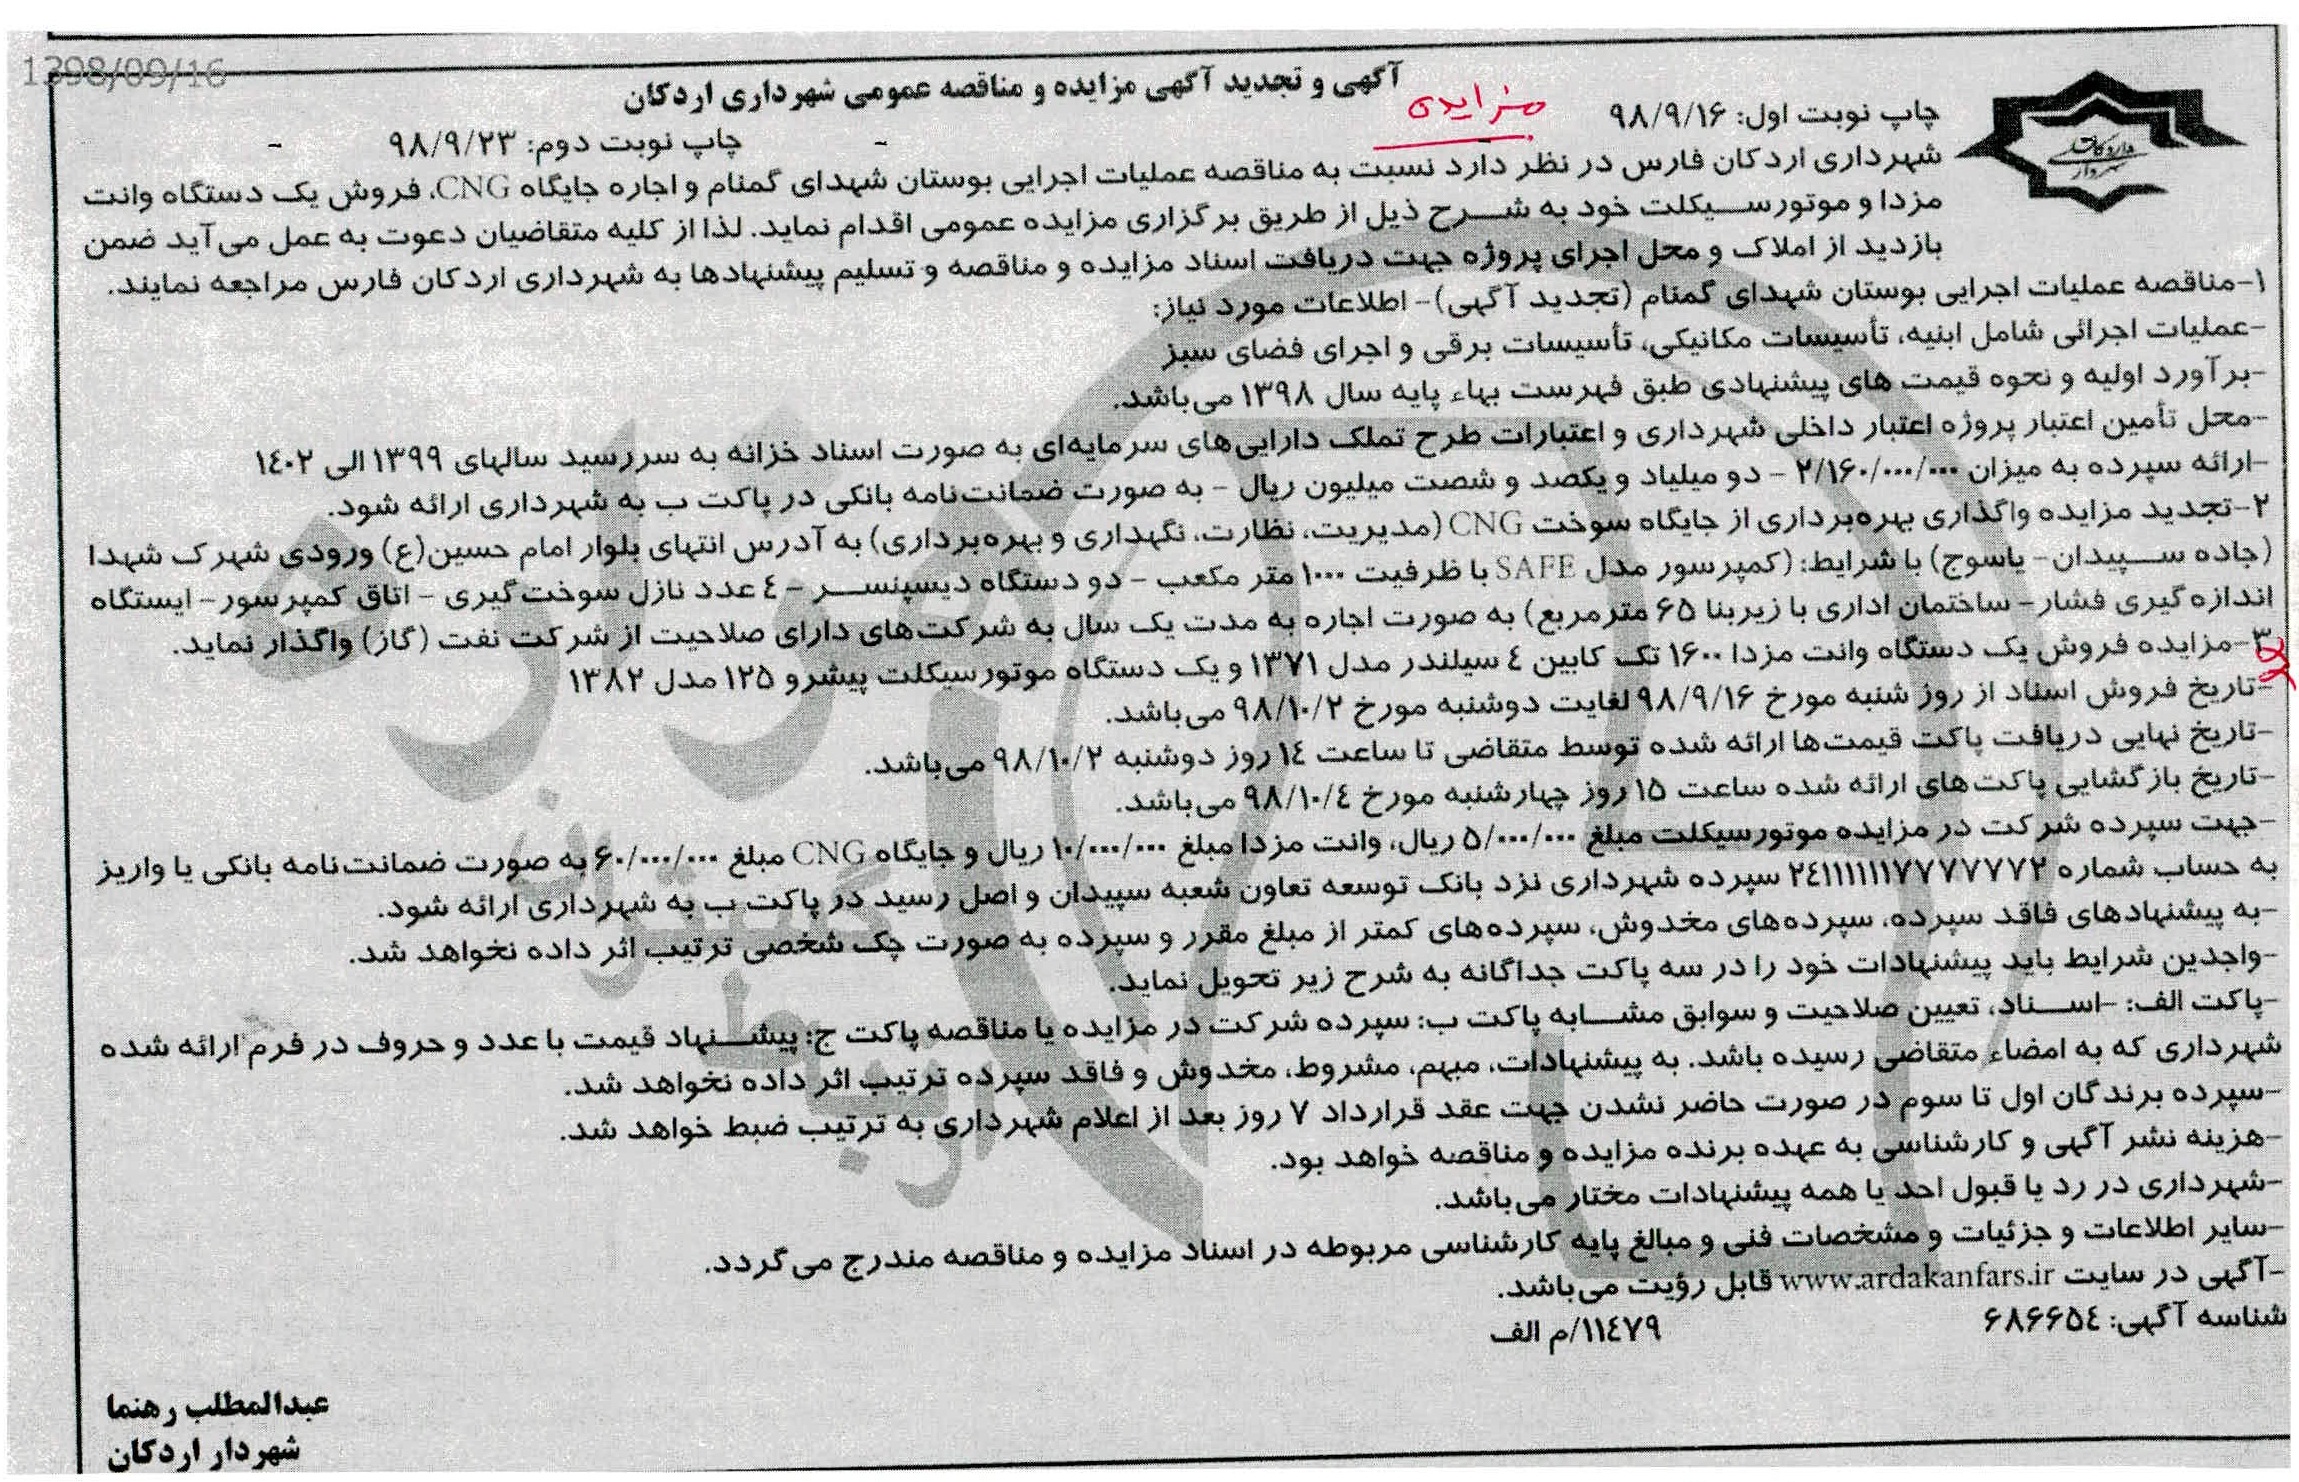 1398/09/16
آگهی و تجدید آگهی مزایده و مناقصه عمومی شهرداری اردکان
مزایده
چاپ نوبت اول: ۹۸/۹/۱۶
چاپ نوبت دوم: ۹۸/۹/۲۳
شهرداری اردکان فارس در نظر دارد نسبت به مناقصه عملیات اجرایی بوستان شهدای گمنام و اجاره جایگاه CNG، فروش یک دستگاه وانت
مزدا و موتورسیکلت خود به شرح ذیل از طریق برگزاری مزایده عمومی اقدام نماید. لذا از کلیه متقاضیان دعوت به عمل می‌آید ضمن
بازدید از املاک و محل اجرای پروژه جهت دریافت اسناد مزایده و مناقصه و تسلیم پیشنهادها به شهرداری اردکان فارس مراجعه نمایند.
۱-مناقصه عملیات اجرایی بوستان شهدای گمنام (تجدید آگهی)- اطلاعات مورد نیاز:
-عملیات اجرائی شامل ابنیه، تأسیسات مکانیکی، تأسیسات برقی و اجرای فضای سبز
-برآورد اولیه و نحوه قیمت های پیشنهادی طبق فهرست بهاء پایه سال ۱۳۹۸ می‌باشد.
-محل تأمین اعتبار پروژه اعتبار داخلی شهرداری و اعتبارات طرح تملک دارایی‌های سرمایه‌ای به صورت اسناد خزانه به سررسید سالهای ۱۳۹۹ الی ۱۴۰۲
-ارائه سپرده به میزان ۲/۱۶۰/۰۰۰/۰۰۰ – دو میلیاد و یکصد و شصت میلیون ریال – به صورت ضمانت‌نامه بانکی در پاکت ب به شهرداری ارائه شود.
۲-تجدید مزایده واگذاری بهره‌برداری از جایگاه سوخت CNG (مدیریت، نظارت، نگهداری و بهره‌برداری) به آدرس انتهای بلوار امام حسین(ع) ورودی شهرک شهدا
(جاده سپیدان- یاسوج) با شرایط: (کمپرسور مدل SAFE با ظرفیت ۱۰۰۰ متر مکعب – دو دستگاه دیسپنسر – ۴ عدد نازل سوخت‌گیری – اتاق کمپرسور- ایستگاه
اندازه گیری فشار- ساختمان اداری با زیربنا ۶۵ مترمربع) به صورت اجاره به مدت یک سال به شرکت‌های دارای صلاحیت از شرکت نفت (گاز) واگذار نماید.
۳-مزایده فروش یک دستگاه وانت مزدا ۱۶۰۰ تک کابین ۴ سیلندر مدل ۱۳۷۱ و یک دستگاه موتورسیکلت پیشرو ۱۲۵ مدل ۱۳۸۲
-تاریخ فروش اسناد از روز شنبه مورخ ۹۸/۹/۱۶ لغایت دوشنبه مورخ ۹۸/۱۰/۲ می‌باشد.
-تاریخ نهایی دریافت پاکت قیمت‌ها ارائه شده توسط متقاضی تا ساعت ۱۴ روز دوشنبه ۹۸/۱۰/۲ می‌باشد.
-تاریخ بازگشایی پاکت‌های ارائه شده ساعت ۱۵ روز چهارشنبه مورخ ۹۸/۱۰/۴ می‌باشد.
-جهت سپرده شرکت در مزایده موتورسیکلت مبلغ ۵/۰۰۰/۰۰۰ ریال، وانت مزدا مبلغ ۱۰/۰۰۰/۰۰۰ ریال و جایگاه CNG مبلغ ۶۰/۰۰۰/۰۰۰ به صورت ضمانت‌نامه بانکی یا واریز
به حساب شماره ۲۴۱۱۱۱۱۱۷۷۷۷۷۷۷۲ سپرده شهرداری نزد بانک توسعه تعاون شعبه سپیدان و اصل رسید در پاکت ب به شهرداری ارائه شود.
-به پیشنهادهای فاقد سپرده، سپرده‌های مخدوش، سپرده‌های کمتر از مبلغ مقرر و سپرده به صورت چک شخصی ترتیب اثر داده نخواهد شد.
-واجدین شرایط باید پیشنهادات خود را در سه پاکت جداگانه به شرح زیر تحویل نماید.
-پاکت الف: -اسناد، تعیین صلاحیت و سوابق مشابه پاکت ب: سپرده شرکت در مزایده یا مناقصه پاکت ج: پیشنهاد قیمت با عدد و حروف در فرم ارائه شده
شهرداری که به امضاء متقاضی رسیده باشد. به پیشنهادات، مبهم، مشروط، مخدوش و فاقد سپرده ترتیب اثر داده نخواهد شد.
-سپرده برندگان اول تا سوم در صورت حاضر نشدن جهت عقد قرارداد ۷ روز بعد از اعلام شهرداری به ترتیب ضبط خواهد شد.
-هزینه نشر آگهی و کارشناسی به عهده برنده مزایده و مناقصه خواهد بود.
-شهرداری در رد یا قبول احد یا همه پیشنهادات مختار می‌باشد.
-سایر اطلاعات و جزئیات و مشخصات فنی و مبالغ پایه کارشناسی مربوطه در اسناد مزایده و مناقصه مندرج می‌گردد.
-آگهی در سایت www.ardakanfars.ir قابل رؤیت می‌باشد.
شناسه آگهی: ۶۸۶۶۵۴
۱۱۴۷۹/م الف
عبدالمطلب رهنما
شهردار اردکان